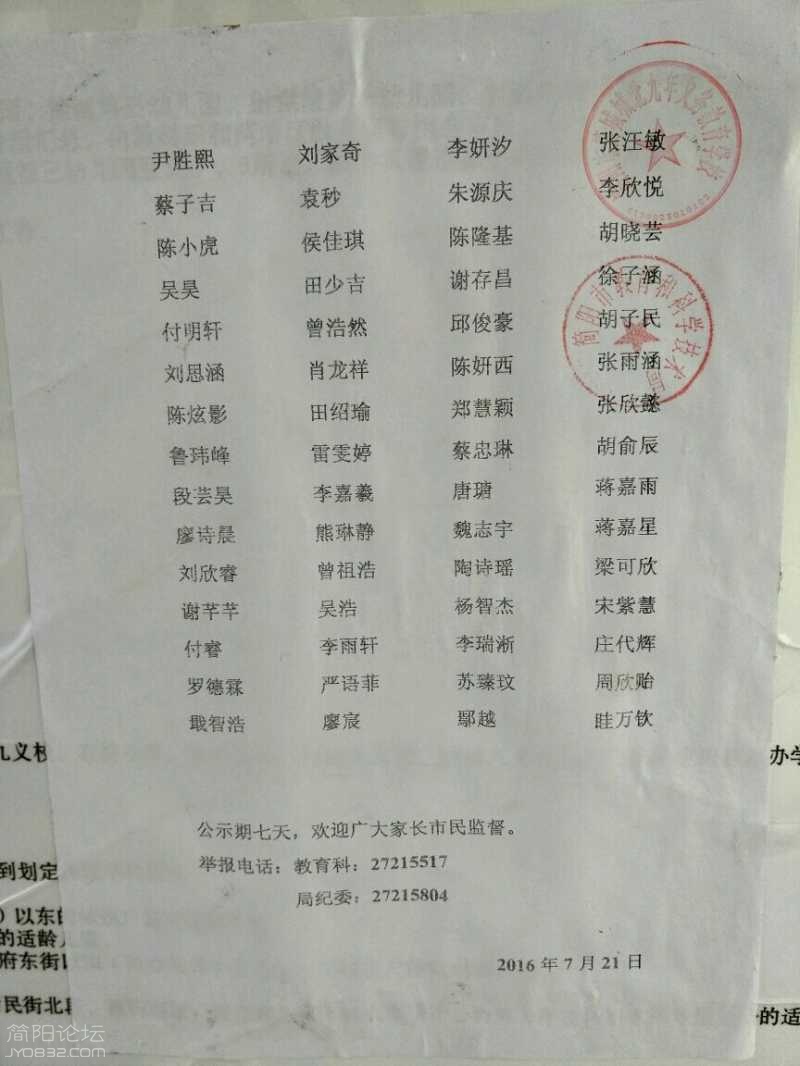 尹胜熙 刘家奇 李妍汐 张汪敏
蔡子吉 袁秒 朱源庆 李欣悦
陈小虎 侯佳琪 陈隆基 胡晓芸
吴昊 田少吉 谢存昌 徐子涵
付明轩 曾浩然 邱俊豪 胡子民
刘恩涵 肖龙祥 陈妍西 张雨涵
陈炫影 田绍瑜 郑慧颖 张欣懿
鲁玮峰 雷雯婷 蔡忠琳 胡俞辰
段芸昊 李嘉羲 唐瑭 蒋嘉雨
廖诗晨 熊琳静 魏志宇 蒋嘉星
刘欣睿 曾祖浩 陶诗瑶 梁可欣
谢芊芊 吴浩 杨智杰 宋紫慧
付睿 李雨轩 李瑞淅 庄代辉
罗德霖 严语菲 苏臻玟 周欣贻
戢智浩 廖宸 鄢越 眭万钦
公示期七天，欢迎广大家长市民监督。
举报电话：教育科：27215517
局纪委：27215804
2016年7月21日
城北九年义务教育学校
简阳市教育和科学技术局
九义校
办学
到划定
）以东的
的适龄儿
府东街以
民街北
的适
简阳论坛
JY0832.com